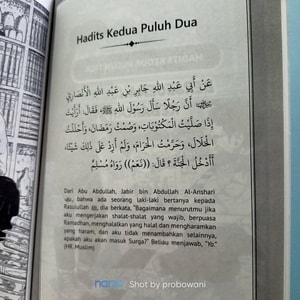 Hadits Kedua Puluh Dua
عَنْ أَبِي عَبْدِ اللهِ جَابِرِ بْنِ عَبْدِ اللهِ الْأَنْصَارِيِّ
أَنَّ رَجُلًا سَأَلَ رَسُوْلَ اللهِ ﷺ فَقَالَ أَرَأَيْتَ
إِذَا صَلَّيْتُ الْمَكْتُوْبَاتِ، وَصُمْتُ رَمَضَانَ، وَأَحْلَلْتُ
الْحَلَالَ، وَحَرَّمْتُ الْحَرَامَ، وَلَمْ أَزِدْ عَلَى ذَلِكَ شَيْئًا،
أَأَدْخُلُ الْجَنَّةَ؟ قَالَ: ((نَعَمْ)) رَوَاهُ مُسْلِمٌ
Dari Abu Abdullah, Jabir bin Abdullah Al-Anshari
, bahwa ada seorang laki-laki bertanya kepada
Rasulullah ﷺ, dia berkata, "Bagaimana menurutmu jika
aku mengerjakan shalat-shalat yang wajib, berpuasa
Ramadhan, menghalalkan yang halal dan mengharamkan
yang haram, dan aku tidak menambahkan selainnya,
apakah aku akan masuk Surga?" Beliau menjawab, "Ya."
(HR. Muslim)
Shot by probowani